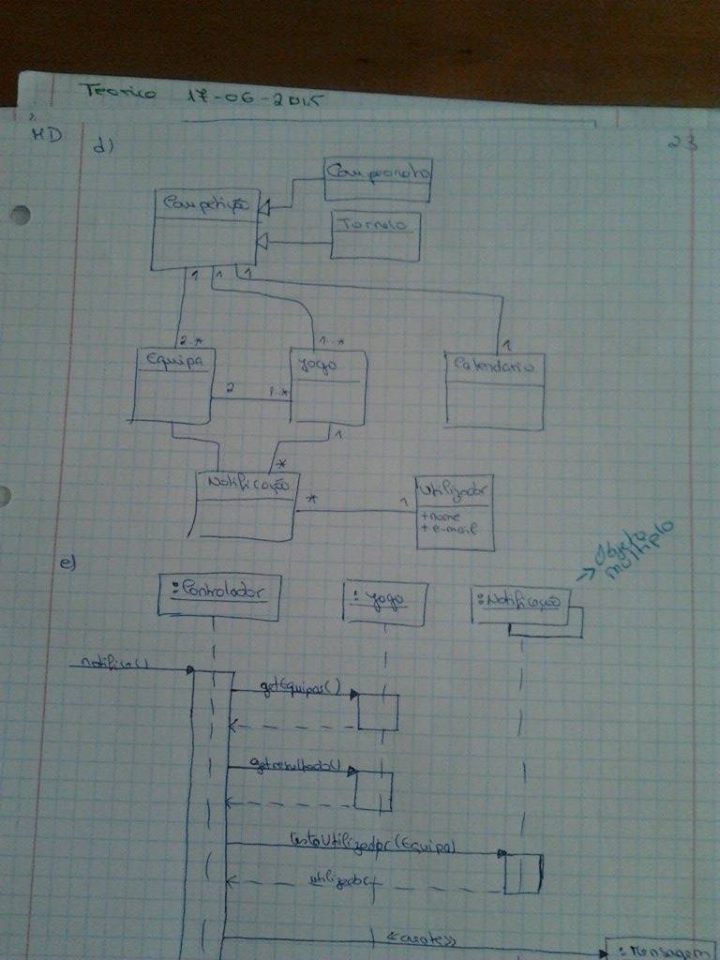 Teorico 17-06-2015
MD
23
d)
Campeonato
Competição
Torneio
1 1 1
2..* 1..* 1
Equipa
Jogo
Calendario
2 1..*
1
*
Notificação
* 1
Utilizador
+nome
+e-mail
e)
Objeto
múltiplo
:Controlador
: Jogo
:Notificação
notifica()
getEquipas()
getresultado()
listaUtilizador(Equipa)
<<create>>
:Mensagem